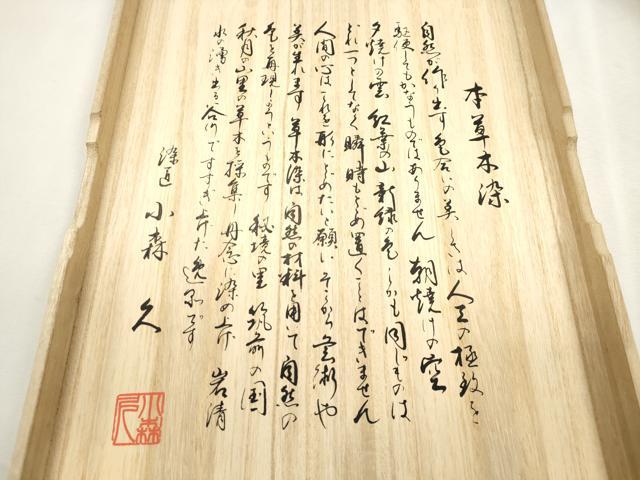 本草木染
自然が作り出す色合いの美しさは人工の極致を
駆使してもかなうものではありません 朝焼けの空
夕焼けの雲 紅葉の山 新緑の色 しかも同じものは
どれ一つとしてなく 瞬時もとめ置くことはできません
人間の心はこれを形にとどめたいと願い そこから芸術や
美が生れます 草木染は自然の材料を用いて自然の
色を再現しようというものです 秘境の里 筑前の国
秋月の山里の草木を採集し丹念に染め上げ 岩清
水の湧き出る谷川ですすぎ上げた逸品です
染匠 小森 久
小森久